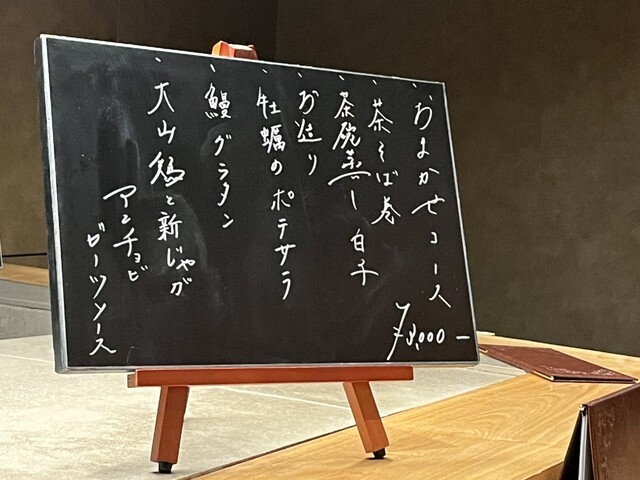 、おまかせコース
¥8,000ー
、茶そば巻
、茶碗蒸し 白子
、お造り
、牡蠣のポテサラ
、鰻グラタン
、大山鶏と新じゃが
アンチョビ
ビーツソース